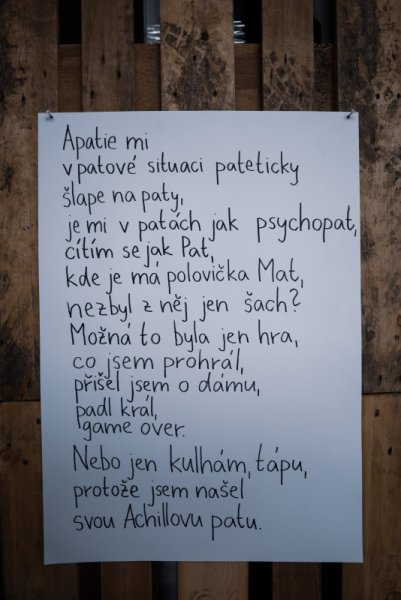 Apatie mi
v patové situaci pateticky
šlape na paty,
je mi v patách jak psychopat,
cítím se jak Pat,
kde je má polovička Mat,
nezbyl z něj jen šach?
Možná to byla jen hra,
co jsem prohrál,
přišel jsem o dámu,
padl král,
game over.
Nebo jen kulhám, tápu,
protože jsem našel
svou Achillovu patu.